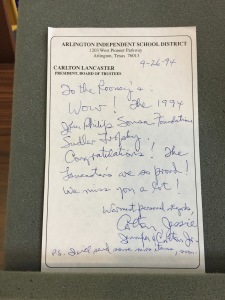 ARLINGTON INDEPENDENT SCHOOL DISTRICT
1203 West Pioneer Parkway
Arlington, Texas 76013
9-26-94
CARLTON LANCASTER
PRESIDENT, BOARD OF TRUSTEES
To the Rooney's
Wow! The 1994
John Philip Sousa Foundation
Sudler Trophy.
Congratulations! The
Lancasters are so proud!
We miss you a lot!
Warmest personal regards,
Carlton Jessie
Jennifer & Carlton Jr.
P.S. I will send some more items, soon.